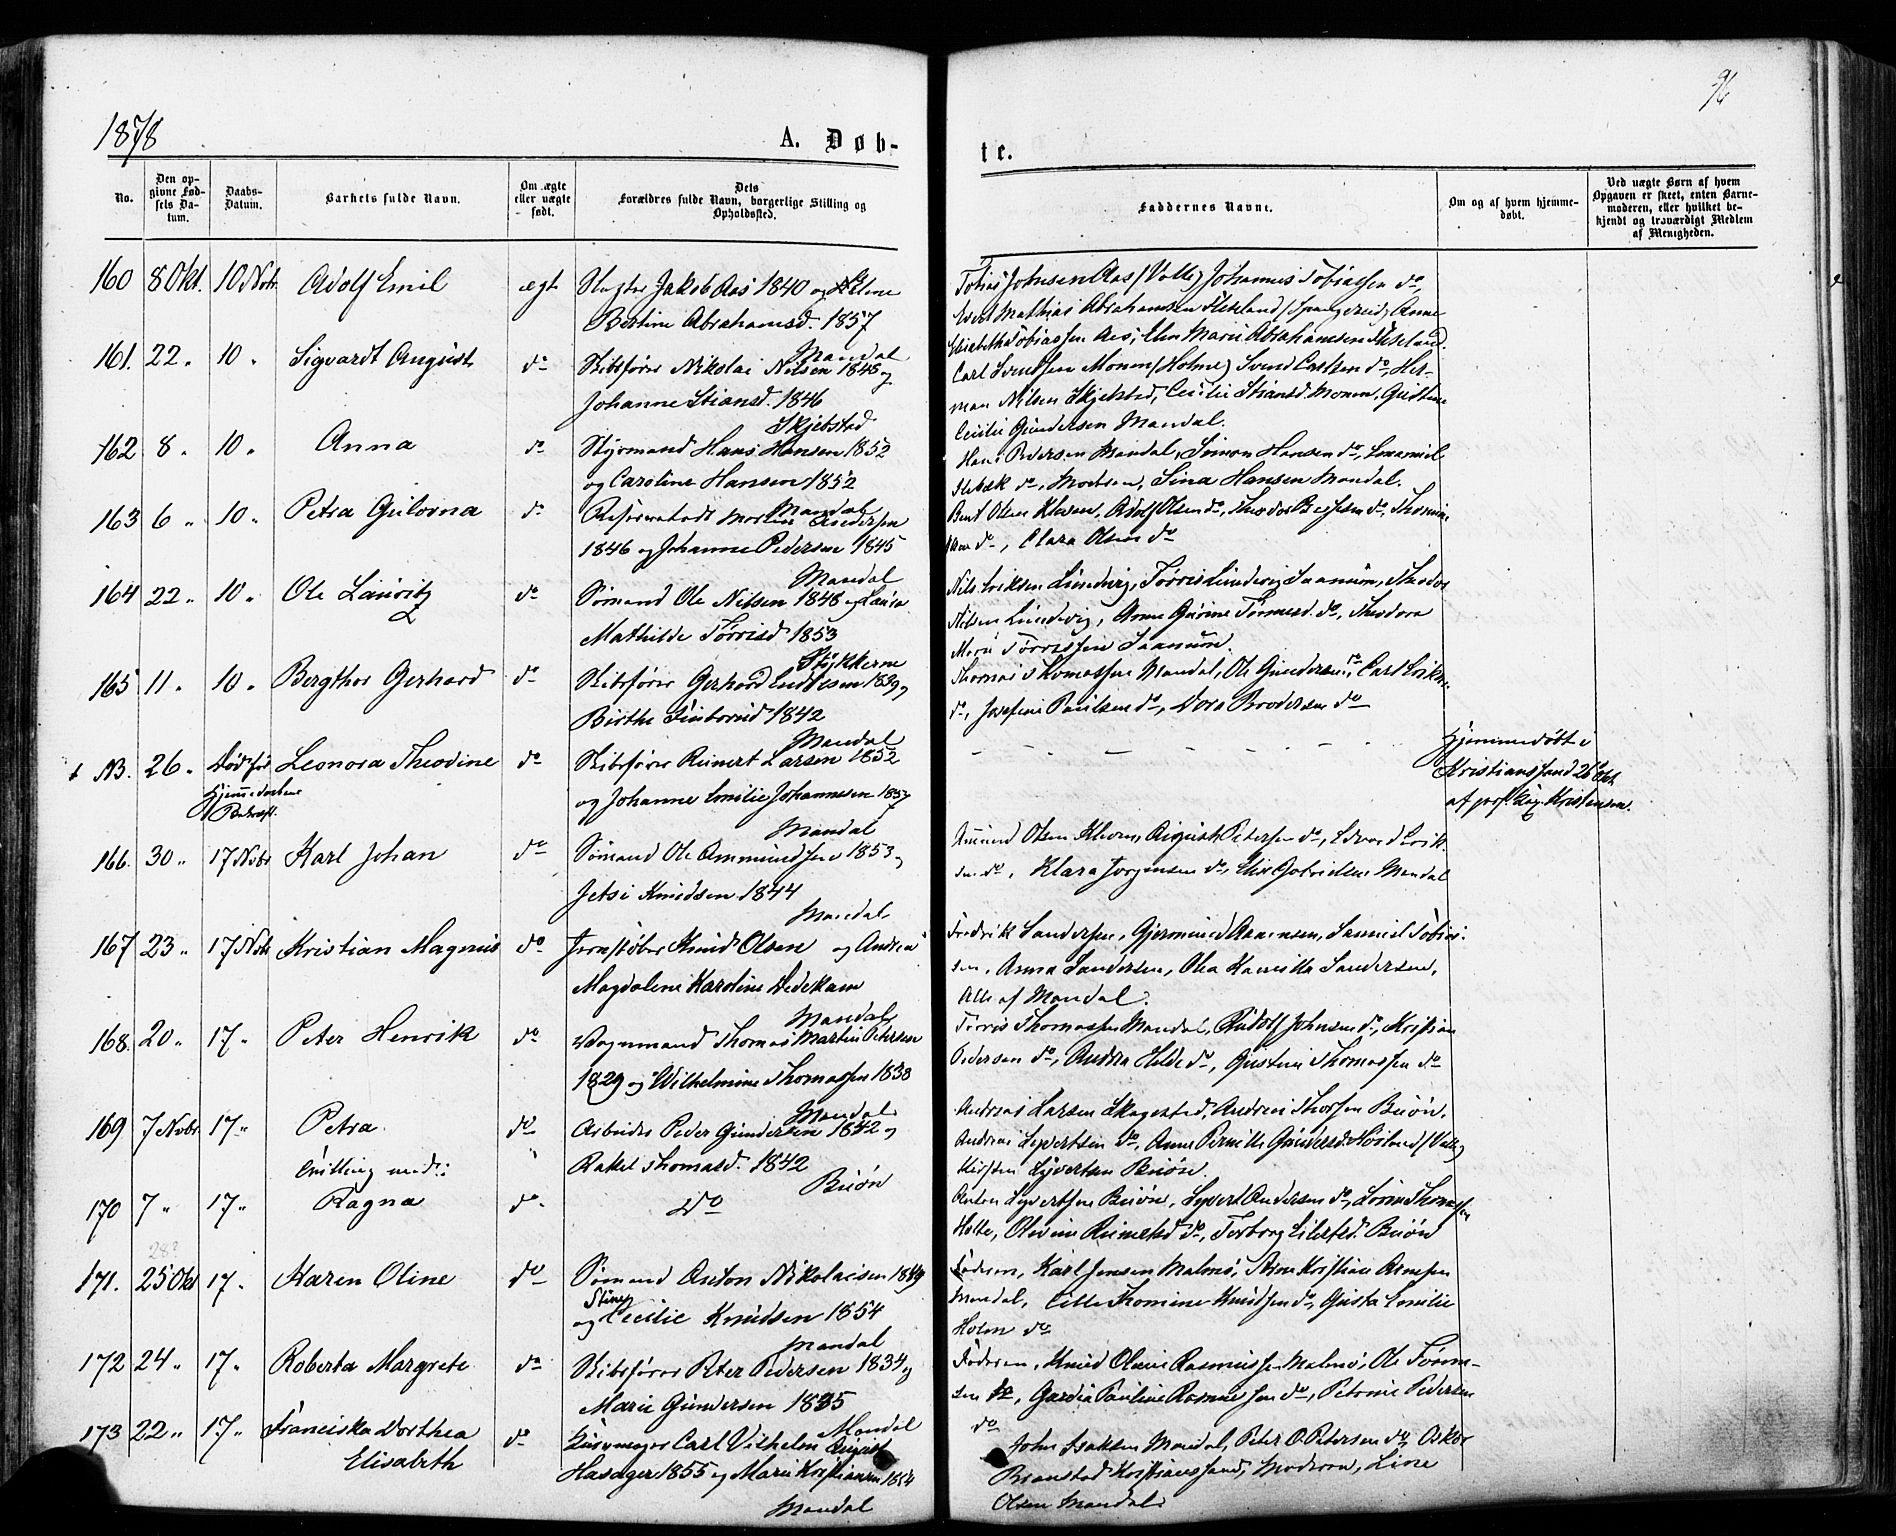 1878
96
A. Døb-
te.
No.
Den op-
givne Fød-
sels Da-
tum.
Daabs-
Datum.
Barnets fulde Navn.
Om ægte
eller uægte
født.
Dets
Forældres fulde Navn, borgerlige Stilling og
Opholdssted.
Faddernes Navne.
Om og af hvem hjemme-
døbt.
Ved uægte Børn af hvem
Opgaven er skeet, enten Barne-
moderen, eller hvilket be-
kjendt og troværdigt Medlem
af Menigheden.
160 8 Okt. 10 Nobr. Adolf Emil ægt Slagter Jakob Aas 1840 og Elene
Bertine Abrahamsd. 1857
Mandal
Tobias Johnsen Aas (Valle) Johannes Tobiassen do,
Evert Mathias Abrahamsen Fiskeland (Spangereid), Anne
Elisabeth Tobiassen Aas, Elen Marie Abrahamsen Fiskeland.
161. 22 „ 10 „ Sigvardt August do Skibsfører Nikolai Nilsen 1845 og
Johanne Stiansd. 1846
Skjebstad
Carl Svendsen Monen (Holme) Svend Carlsen do, Her-
man Nilsen Skjebstad, Cecilie Stiansd. Monen, Gustine
Cecilie Gundersen Mandal.
162 8 „ 10 „ Anna do Styrmand Hans Hansen 1852
og Caroline Hansen 1852
Mandal
Hans Pedersen Mandal, Simon Hansen do, Emanuel
do, Moderen, Sina Hansen Mandal.
163 6 „ 10 „ Petra Gulovna do Morten Andersen
1846 og Johanne Pedersen 1845
Mandal
Bent Olsen Kleven, Adolf Olsen do, Theodor Berntsen do, Thomine
do, Clara Olsen do
164 22 „ 10 „ Ole Lauritz do Sømand Ole Nilsen 1848 og Laura
Mathilde Tørrisd. 1853
Stykkerne
Nils Eriksen Lundevig, Tørris Lundevig Saanum, Theodor
Nilsen Lundevig, Anne Gurine do, Theodora
Marie Tørrissen Saanum.
165 11 „ 10 „ Bergthor Gerhard do Skibsfører Gerhard 1839 og
Birthe 1842
Mandal
Thomas Thomassen Mandal, Ole Gundersen do, Carl Eriksen
do, Josefine Paulsen do, Dora Brodersen do
+ NB. 26 „ Død før
Hjemmedaabens
Bekræft. Leonora Theodine do Skibsfører Reinert Larsen 1852
og Johanne Emilie Johannesen 1857
Mandal
Hjemmedøbt i
Kristianssand 26 Okt.
af Kristensen.
166. 30 „ 17 Nobr Karl Johan do Sømand Ole Ammundsen 1853 og
Jetsi Knudsen 1844
Mandal
Amund Olsen Kleven, August Petersen do, Edvard Erik-
sen do, Klara Jørgensen do, Elise Gabrielsen Mandal
167 23 „ 17 Nobr Kristian Magnus do Jernstøber Knud Olsen og Andrea
Magdalene Karoline Dedekam
Mandal
Fredrik Sandersen, Gjermund Aanensen, Samuel Tobias-
sen, Anna Sandersen, Olea Kamilla Sandersen,
Alle af Mandal.
168. 20 „ 17 „ Peter Henrik do Vognmand Thomas Martin Petersen
1829 og Wilhelmine Thomassen 1838
Mandal
Tørris Thomassen Mandal, Rudolf Johnsen do, Kristian
Pedersen do, Andrea Helde do, Gustine Thomassen do
169 7 Nobr 17 „ Petra do Arbeider Peder Gundersen 1842 og
Tvilling med: Rakel Thomasd. 1842
Buøn
Andreas Larsen Skogestad, Andreas Thorsen Buøn,
Andreas Syvertsen do, Anne Pernille Gundersd. (Valle)
Kirsten Syvertsen Buøn.
170 7 „ 17 „ Ragna do do
Anton Syvertsen Buøn, Syvert Andersen do, Lovise Thomassen
Holte, Olevine do, Torborg Eilertsd. Buøn
28?
171. 25 Okt 17 „ Maren Oline do Sømand Anton Nikolaisen 1849
og Stine Cecilie Knudsen 1854
Mandal
Faderen, Karl Jensen Malmø, Kristian Arnesen
Mandal, Cille Thomine Knudsen do, Gusta Emilie
Holm do
172 24 „ 17 „ Roberta Margrete do Skibsfører Peter Pedersen 1834 og
Marie Gundersen 1835
Mandal
Faderen, Knud Olaus Rasmussen Malmø, Ole Tønne-
sen do, Gardia Pauline Rasmussen do, Petomine Pedersen
do
173 22 „ 17 „ Franciska Dorthea
Elisabeth do Carl Vilhelm August
Hasager 1855 og Marie Kristiansen 1854
Mandal
John Isaksen Mandal, Peter O. Petersen do, Oskar
Branstad Kristianssand, Moderen, Line
Olsen Mandal.